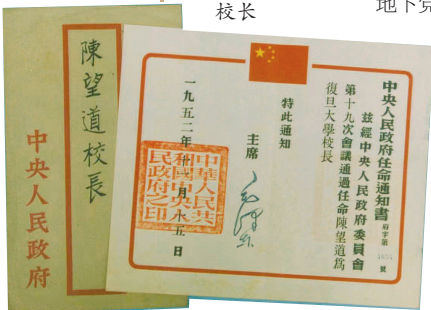 校长
地下
陳望道校長
中央人民政府
中央人民政府任命通知書 府字第 號
茲經中央人民政府委員會
第十九次會議通過任命陳望道爲
復旦大學校長
特此通知
主席
毛澤东
一九五二年十一月十五日
中華人民共和國中央人民政府之印